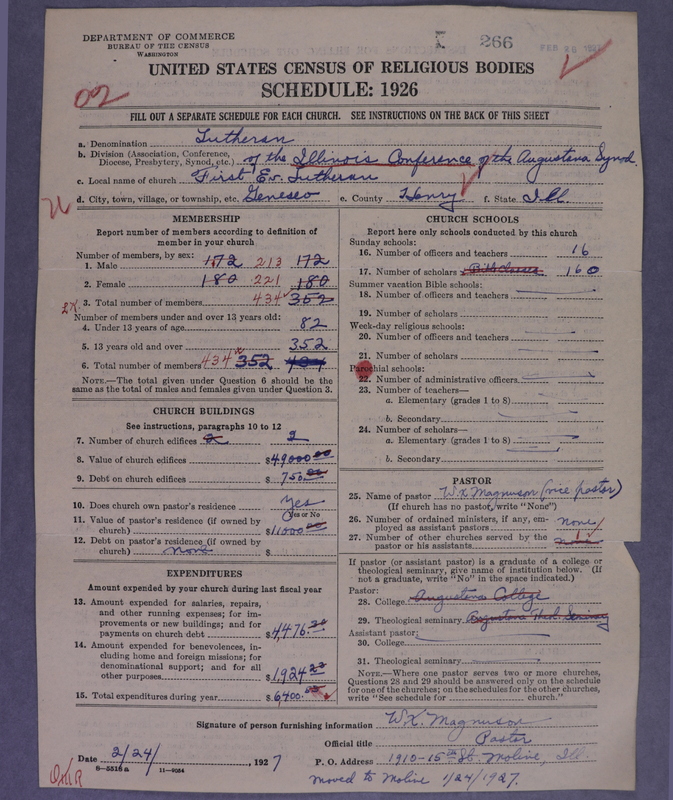 DEPARTMENT OF COMMERCE
BUREAU OF THE CENSUS
WASHINGTON
266
UNITED STATES CENSUS OF RELIGIOUS BODIES
SCHEDULE: 1926
FILL OUT A SEPARATE SCHEDULE FOR EACH CHURCH. SEE INSTRUCTIONS ON THE BACK OF THIS SHEET
a. Denomination Lutheran
b. Division (Association, Conference, Diocese, Presbytery, Synod, etc.) of the Illinois Conference of the Augustana Synod.
c. Local name of church First Ev. Lutheran
d. City, town, village, or township, etc. Geneseo e. County Henry f. State Ill.
MEMBERSHIP
Report number of members according to definition of
member in your church
Number of members, by sex:
1. Male 172 213 172
2. Female 180 221 180
3. Total number of members 434 352
Number of members under and over 13 years old:
4. Under 13 years of age 82
5. 13 years old and over 352
6. Total number of members 434 352 434
NOTE.—The total given under Question 6 should be
same as the total of males and females given under Question 3.
CHURCH BUILDINGS
See instructions, paragraphs 10 to 12
7. Number of church edifices 2 2
8. Value of church edifices $49000 00
9. Debt on church edifices $750.00
10. Does church own pastor's residence? yes
Yes or No
11. Value of pastor's residence (if owned by
church) $11000 00
12. Debt on pastor's residence (if owned by
church) none $
EXPENDITURES
Amount expended by your church during last fiscal year
13. Amount expended for salaries, repairs,
and other running expenses; for im-
provements or new buildings; and for
payments on church debt $4,476.
14. Amount expended for benevolences, in-
cluding home and foreign missions; for
denominational support; and for all
other purposes $1,924
15. Total expenditures during year $6400.
CHURCH SCHOOLS
Report here only schools conducted by this church
Sunday schools:
16. Number of officers and teachers 16
17. Number of scholars 160
Summer vacation Bible schools:
18. Number of officers and teachers
19. Number of scholars
Week-day religious schools:
20. Number of officers and teachers
21. Number of scholars
Parochial schools:
22. Number of administrative officers
23. Number of teachers—
a. Elementary (grades 1 to 8)
b. Secondary
24. Number of scholars—
a. Elementary (grades 1 to 8)
b. Secondary
PASTOR
25. Name of pastor W. X. Magnuson (vice pastor)
(If church has no pastor, write "None")
26. Number of ordained ministers, if any, em-
ployed as assistant pastors none
27. Number of other churches served by the
pastor or his assistants 1
If pastor (or assistant pastor) is a graduate of a college or
theological seminary, give name of institution below. (If
not a graduate, write "No" in the space indicated.)
Pastor:
28. College Augustana College
29. Theological seminary Augustana Theol. Seminary
Assistant pastor:
30. College
31. Theological seminary
NOTE.—Where one pastor serves two or more churches,
Questions 28 and 29 should be answered only on the schedule
for one of the churches; on the schedules for the other churches,
write "See schedule for church."
Signature of person furnishing information W. X. Magnuson
Official title Pastor
Date 2/24/ 1927 P. O. Address 1910-15th St. Moline, Ill.
6-5518a 11-9084
moved to Moline 1/24/1927.